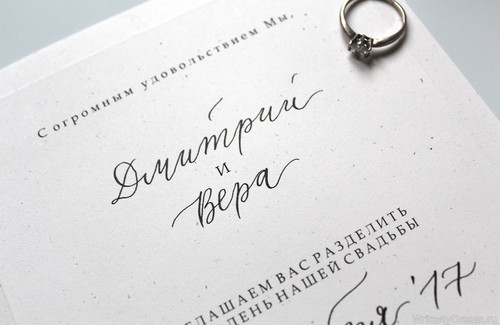 С огромным удовольствием Мы,
Дмитрий
и
Вера
ВАС РАЗДЕЛИТЬ
ДЕНЬ НАШЕЙ СВАДЬБЫ
'17